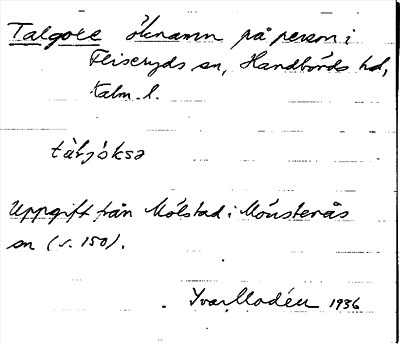 Talgoxe öknamn på person i
Fliseryds sn, Handbörds hd,
Kalm. l.
tàljóksə
Uppgift från Mölstad i Mönsterås
sn (s. 150).
Yvar Modéer 1936